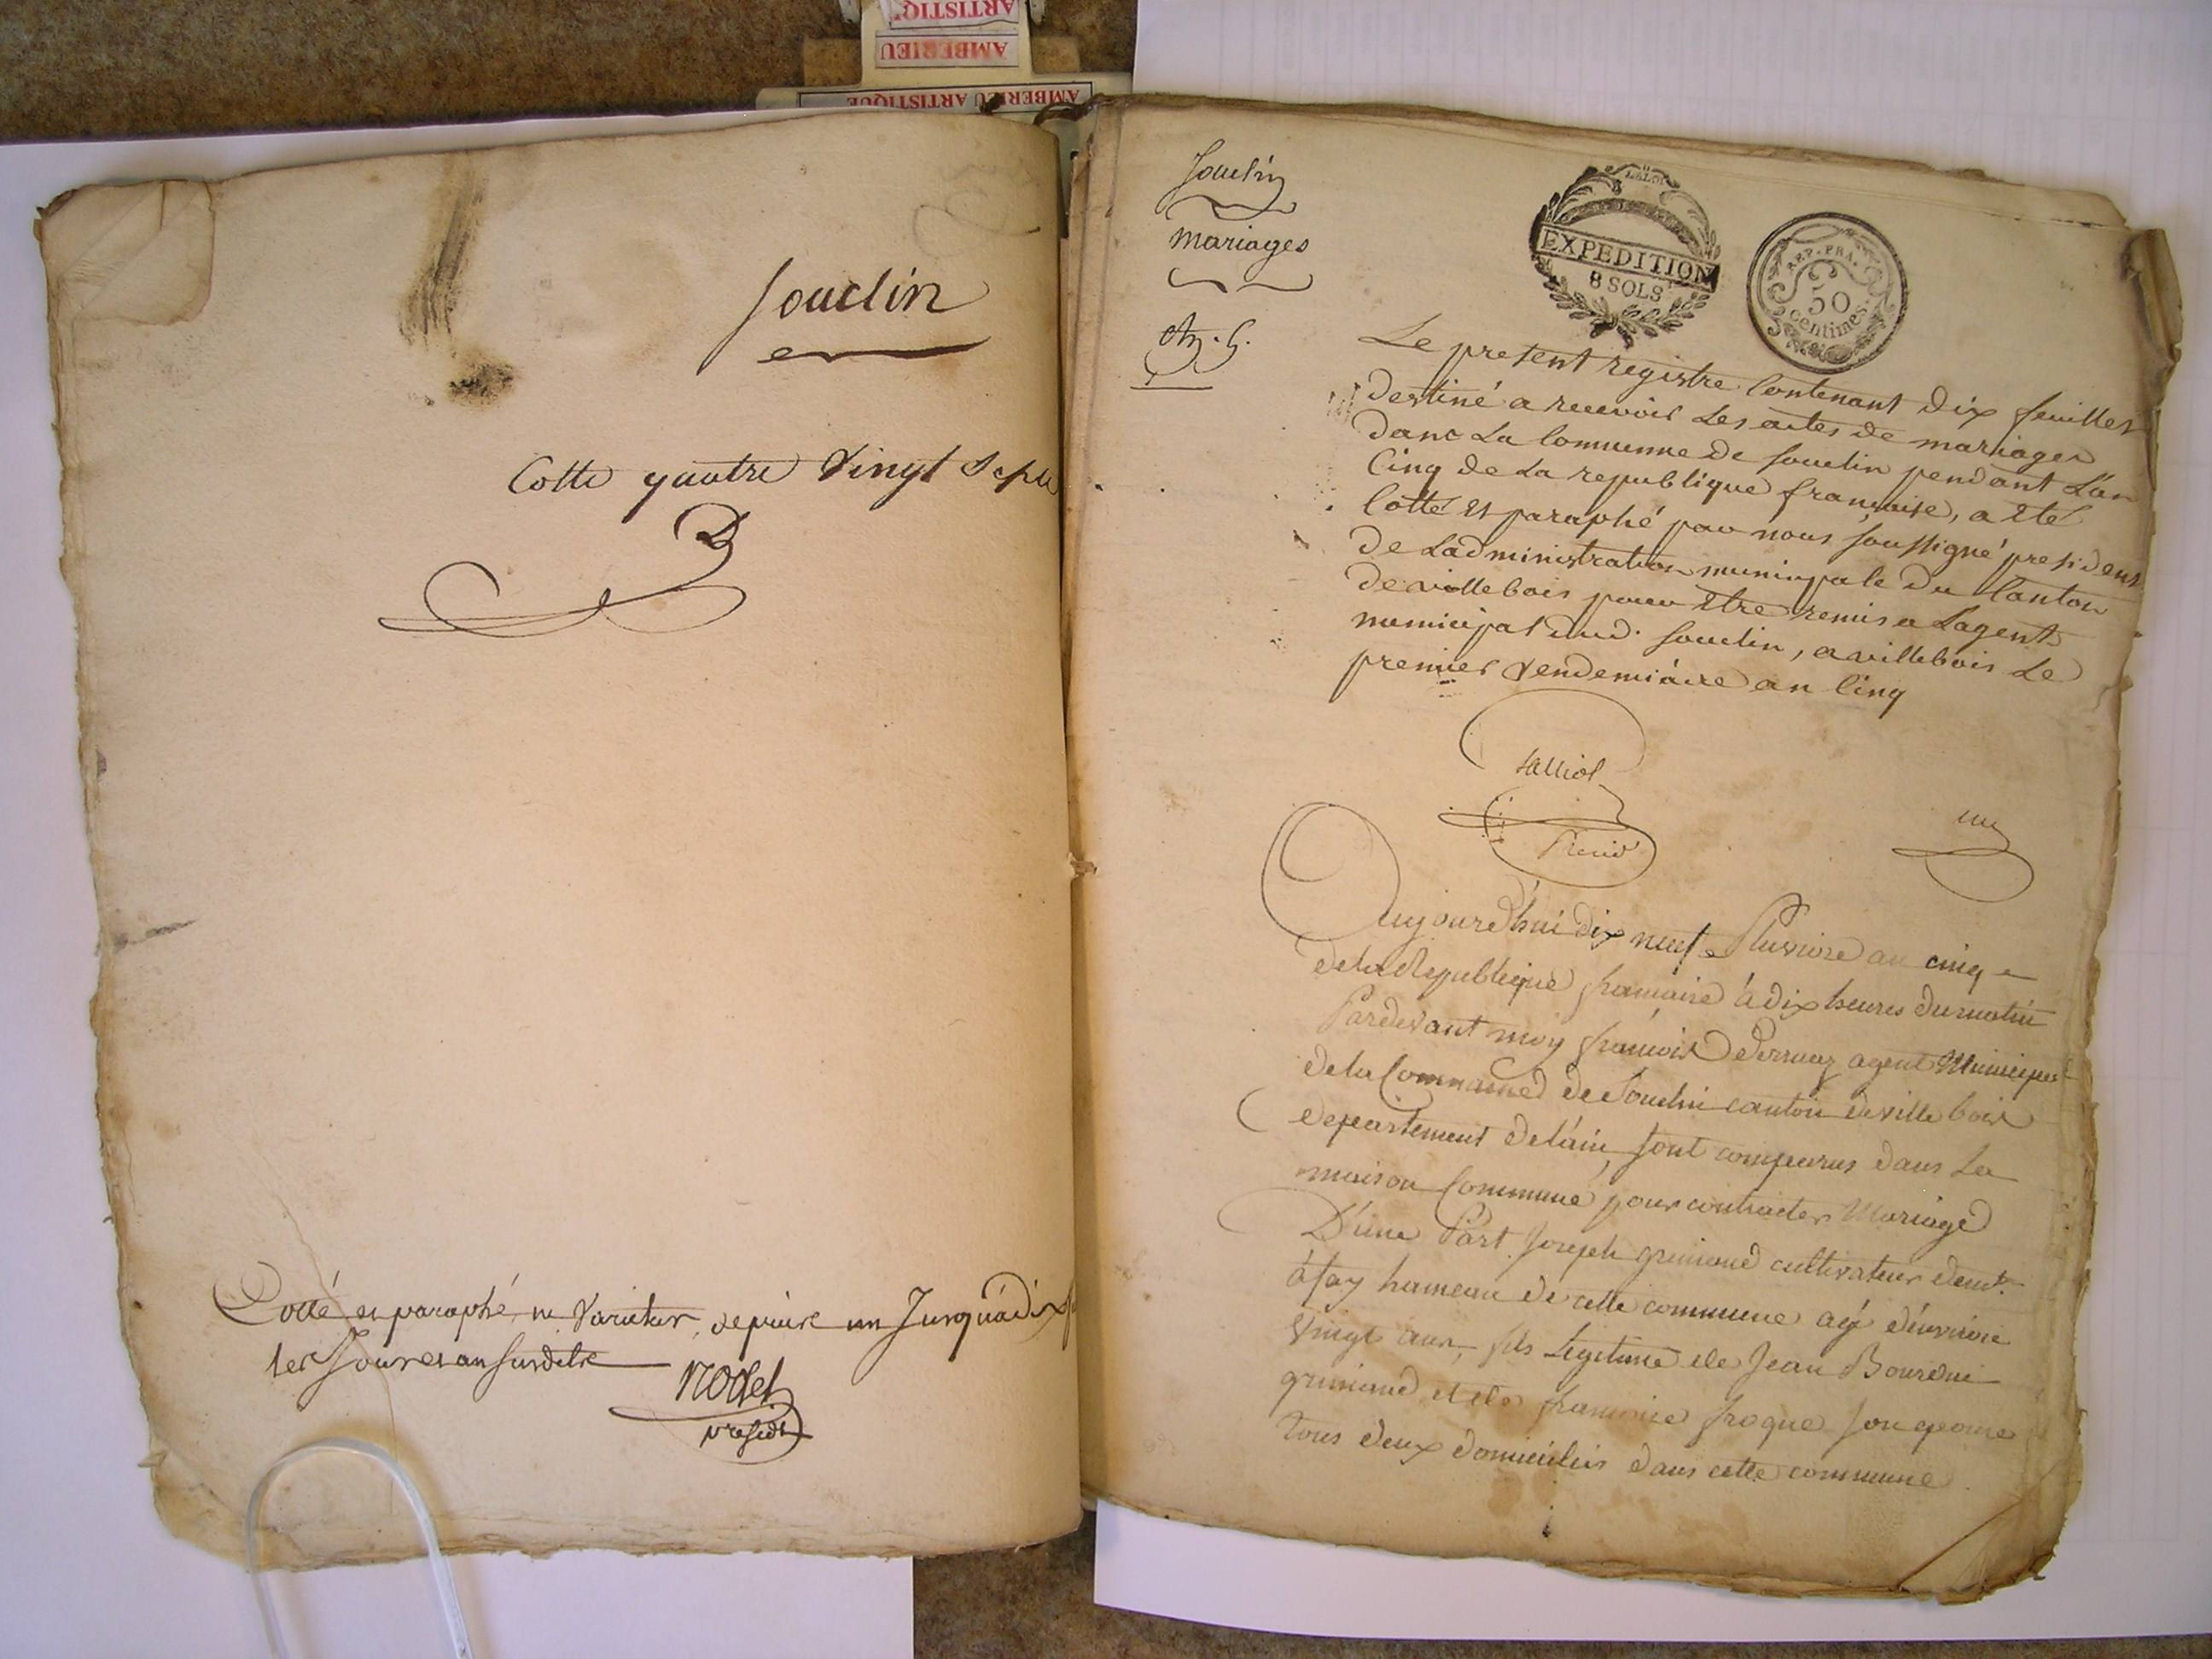 ARTISTIQ
AMBERIEU
AMBERIEU ARTISTIQUE
Souclin
Cotte quatre Vingt Sept
Cotté et paraphé ne Varietur, depuis un Jusqu'a dix
les Jour et an susdits
Nodet
presidt
Souclin
Mariages
LA LOI
EXPEDITION
8 SOLS
REP. FRA.
50
centimes.
Le present registre Contenant dix feuilles
destiné a recevoir Les actes de mariages
dans La Commune de souclin pendant L'an
Cinq de La republique française, a eté
Cotté et paraphé par nous soussigné president
de Ladministration municipale du Canton
de villebois pour être remis a Lagent
municipal dud. souclin, a villebois Le
premier Vendemiaire an Cinq
un
Aujourd'hui dix neuf Pluviose an cinq
de la Republique francaise à dix heures du matin
Pardevant moy francois agent Municipal
de la Commune de Souclin canton de ville bois
departement de l'ain, sont comparus dans La
maison Commune pour contracter Mariage
D'une Part Joseph grimand cultivateur demt.
à fay hameau de cette commune agé d'environ
Vingt ans, fils Legitime de Jean Bourdin
grimand et de francoise
tous deux domiciliés dans cette commune